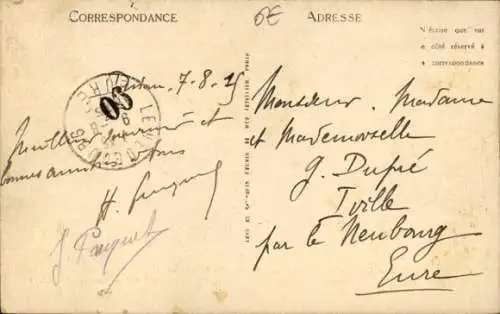 CORRESPONDANCE
6€
ADRESSE
N'écrire que sur
le côté réservé à
la correspondance
7.8.25
06
LE NEUBOURG
EURE
Meilleur souvenir et
bonnes amitiés à tous
H. Pacquet
J. Pacquet
Monsieur, Madame
et Mademoiselle
G. Dupré
Iville
par le Neubourg
Eure